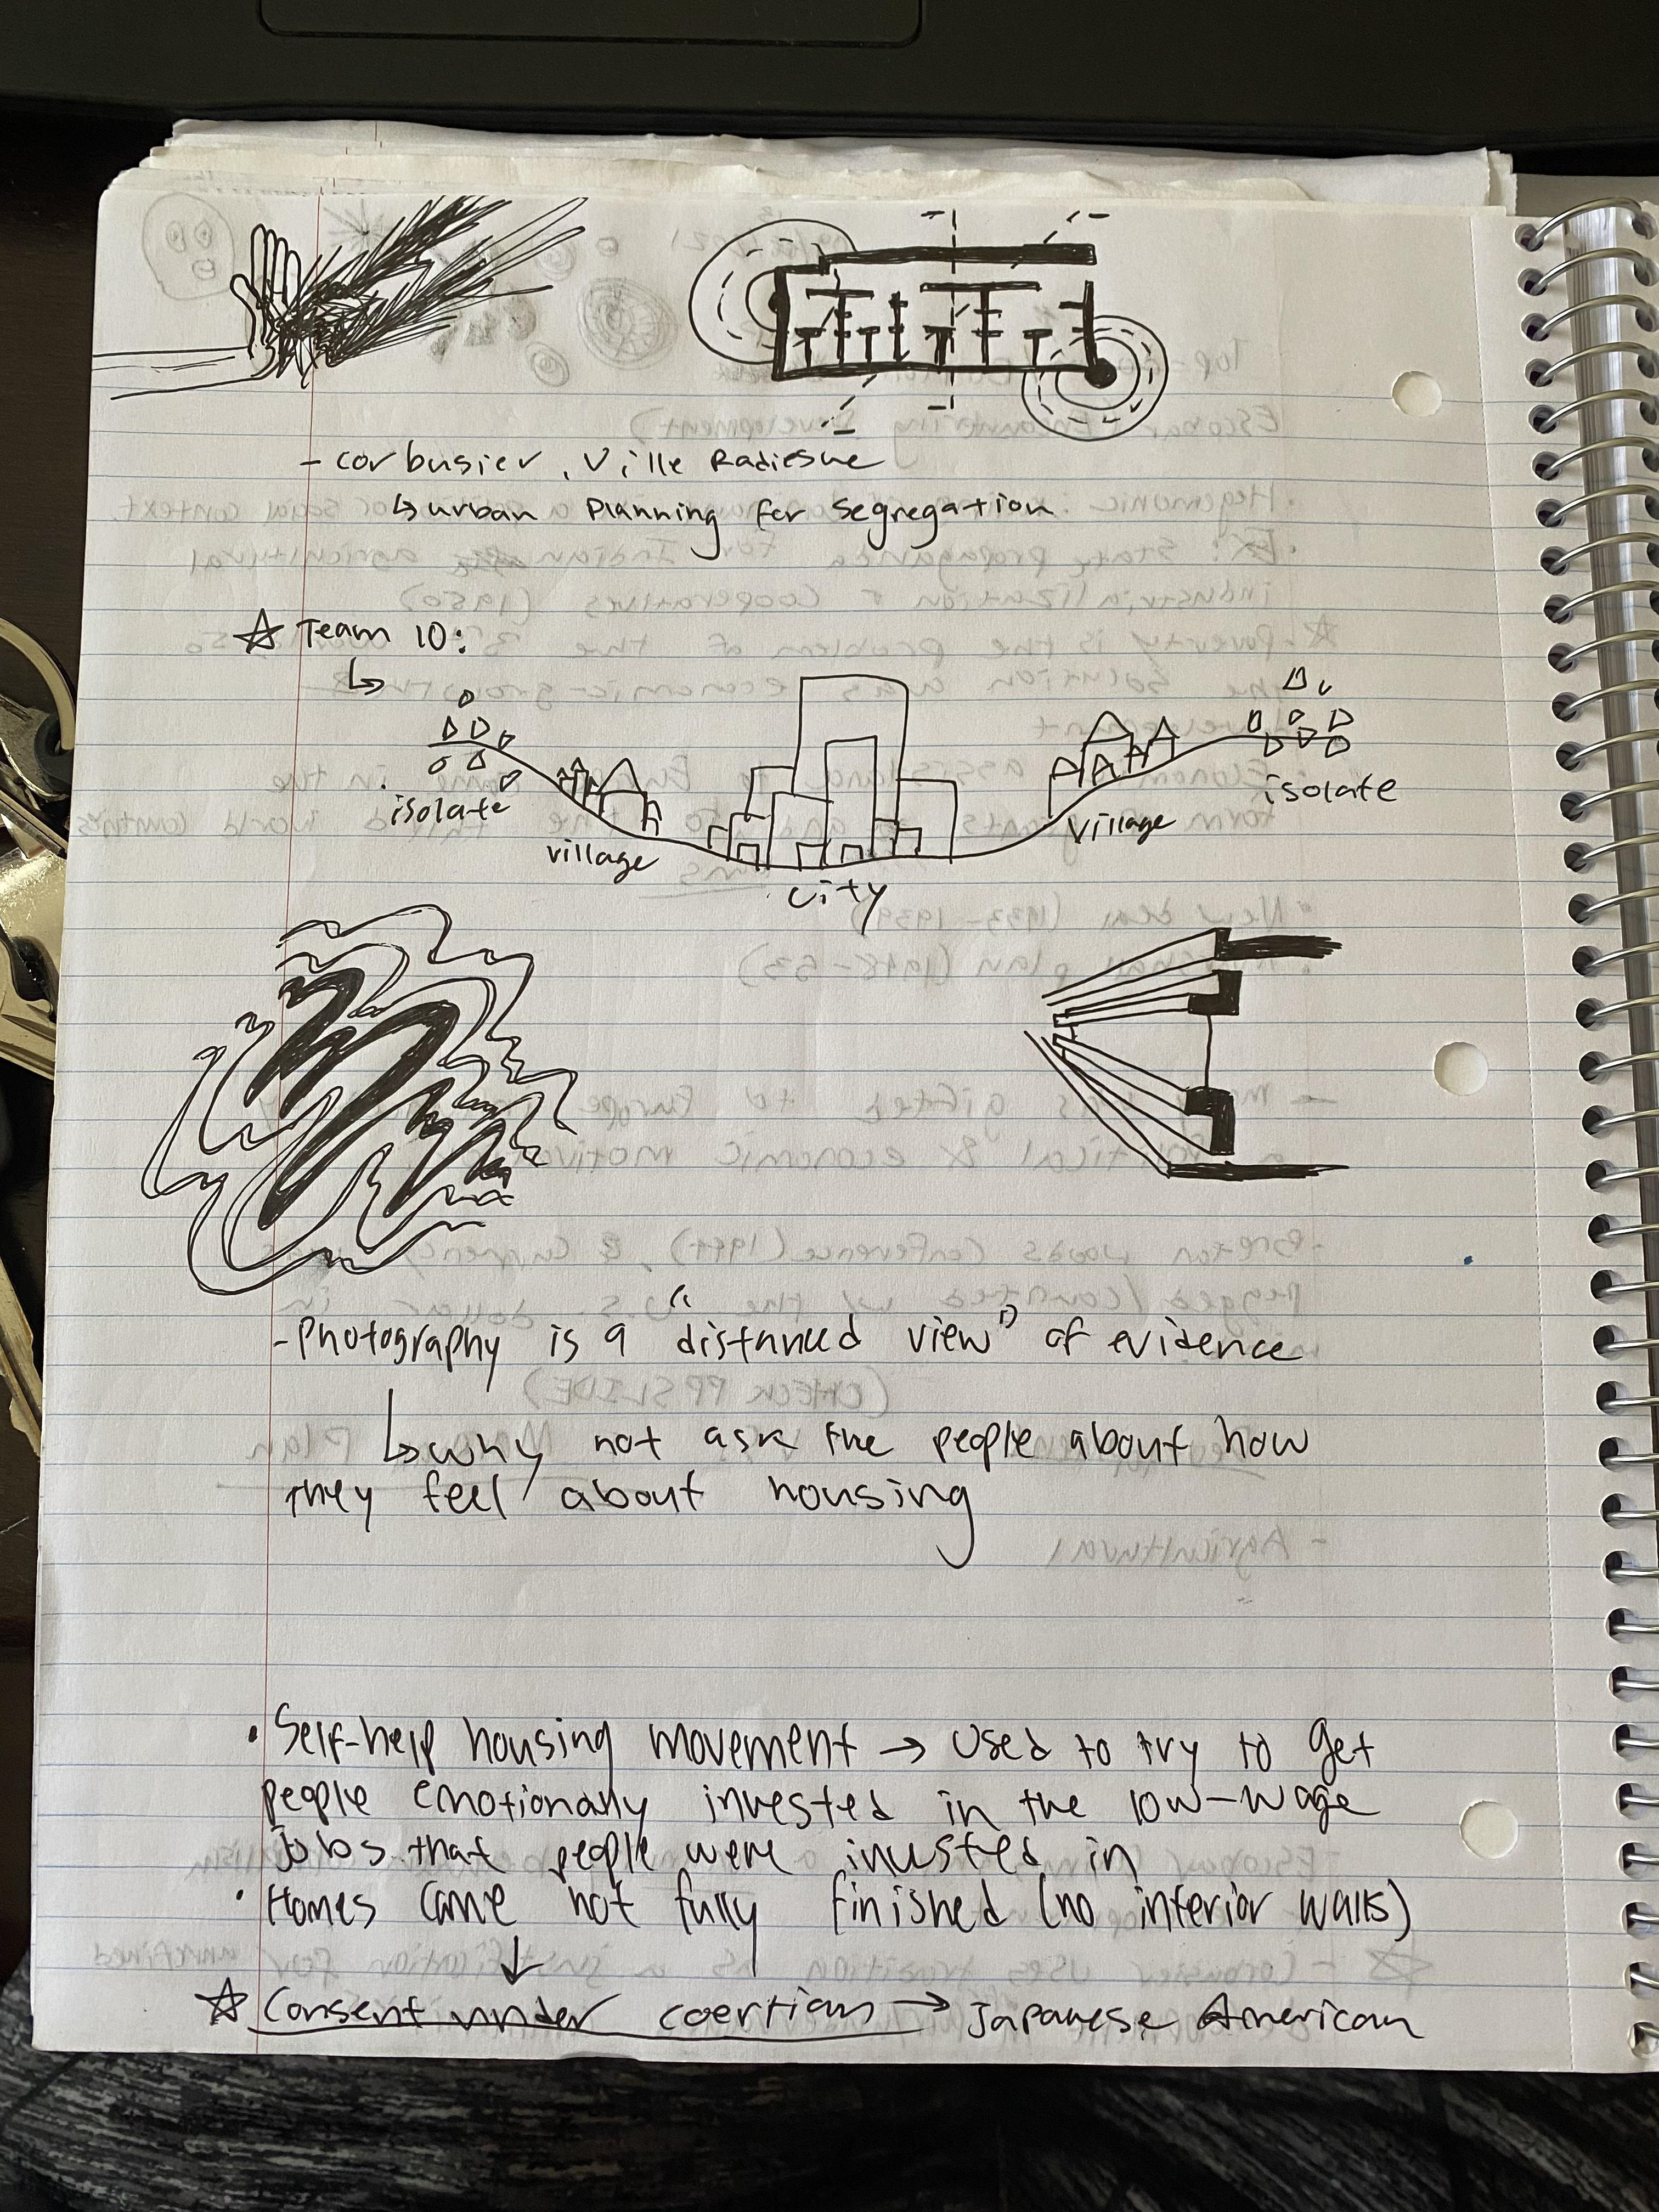 - Corbusier, Ville Radiesue
↳ urban Planning for Segregation
☆ Team 10:
isolate
village
city
village
isolate
- Photography is a "distanced view" of evidence
↳ why not ask the people about how
they feel about housing
• Self-help housing movement → Used to try to get
people emotionally invested in the low-wage
jobs that people were invested in
• Homes came not fully finished (no interior walls)
☆ Consent under coertian → Japanese American